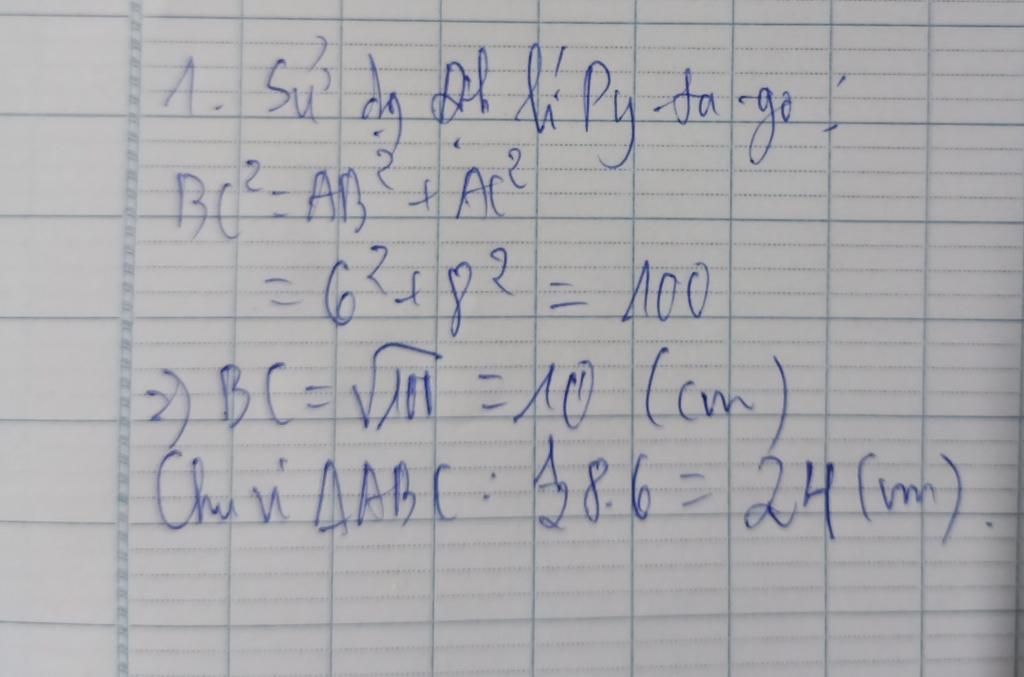 1. Sử dg Đl lí Py-ta-go:
BC² = AB² + AC²
= 6² + 8² = 100
=> BC = √100 = 10 (cm)
Chu vi ΔABC: 8.6 = 24 (cm).